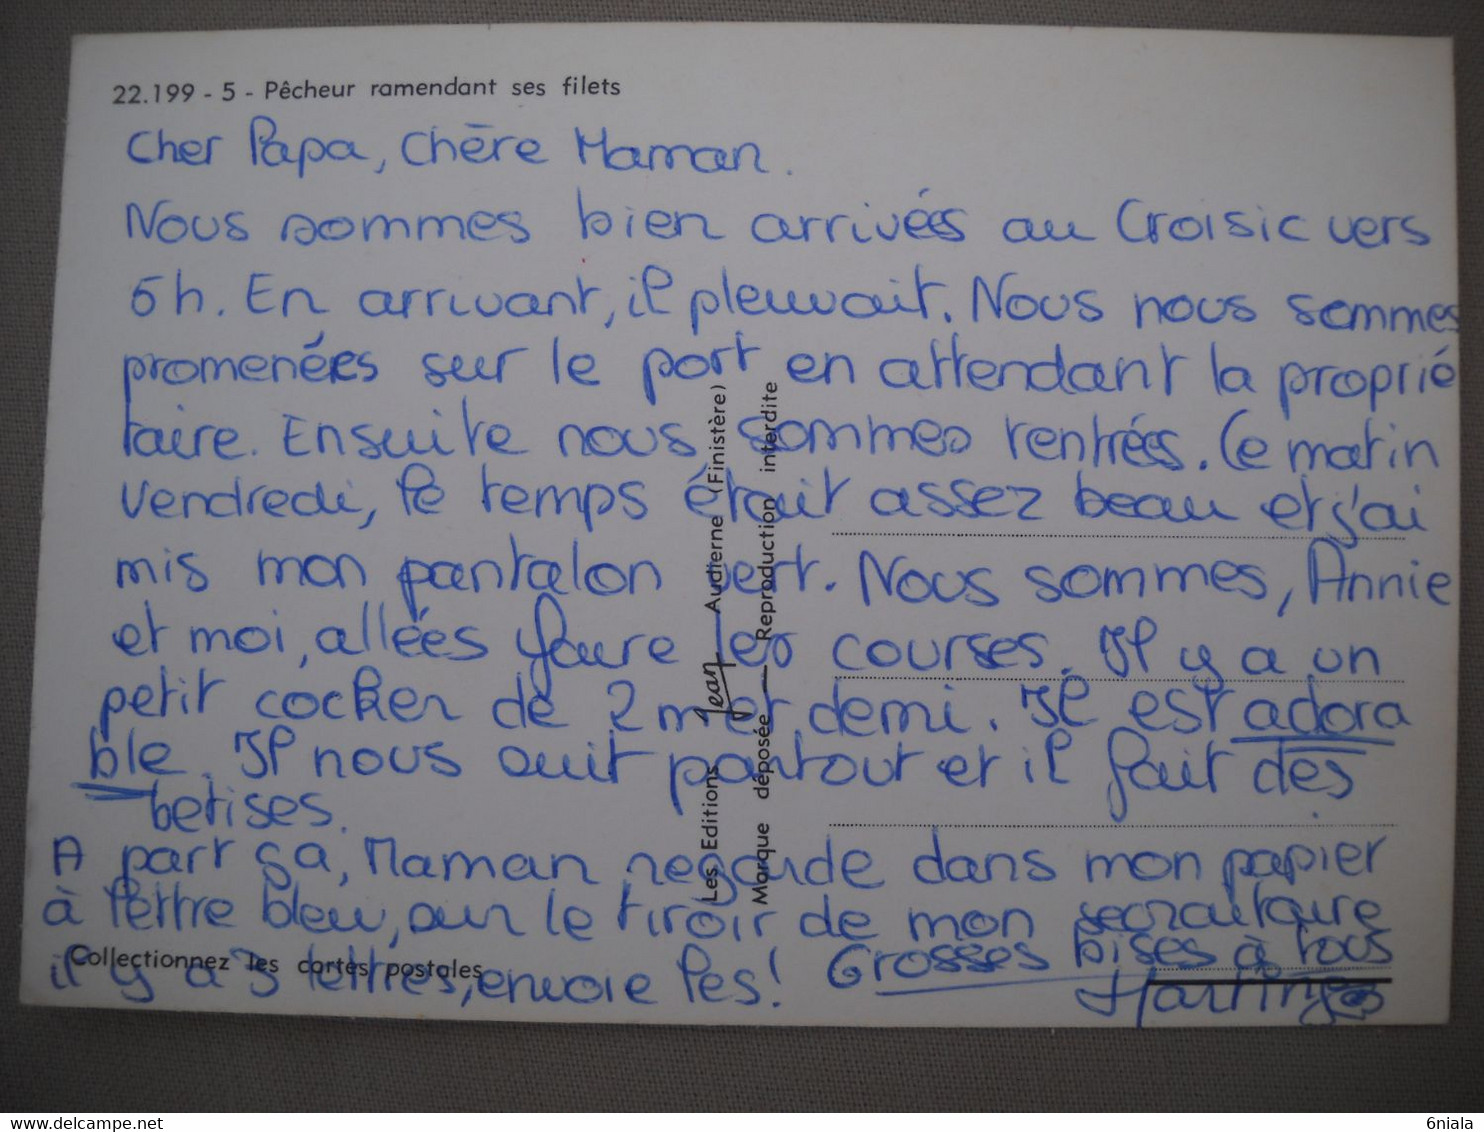 22.199 - 5 - Pêcheur ramendant ses filets
Cher Papa, Chère Maman.
Nous sommes bien arrivées au Croisic vers
5h. En arrivant, il pleuvait. Nous nous sommes
promenées sur le port en attendant la proprié
taire. Ensuite nous sommes rentrées. Ce matin
vendredi, le temps était assez beau et j'ai
mis mon pantalon vert. Nous sommes, Annie
et moi, allées faire les courses. Il y a un
petit cocker de 2 m et demi. Il est adora
ble. Il nous suit partout et il fait des
betises.
A part ça, Maman regarde dans mon papier
à lettre bleu, sur le tiroir de mon secraitaire
il y a 3 lettres, envoie les! Grosses bises à tous
Martine
Collectionnez les cartes postales
Les Editions Jean Audierne (Finistère)
Marque déposée — Reproduction interdite
delcampe.net
6niala